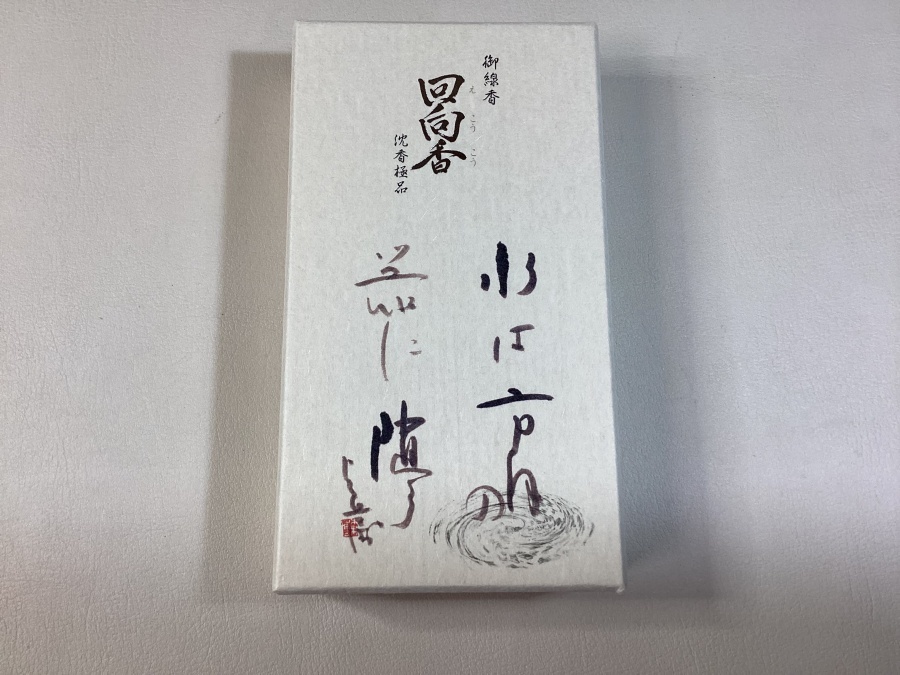 御線香
回向香
え こう こう
沈香極品
水は方円の
器に随う